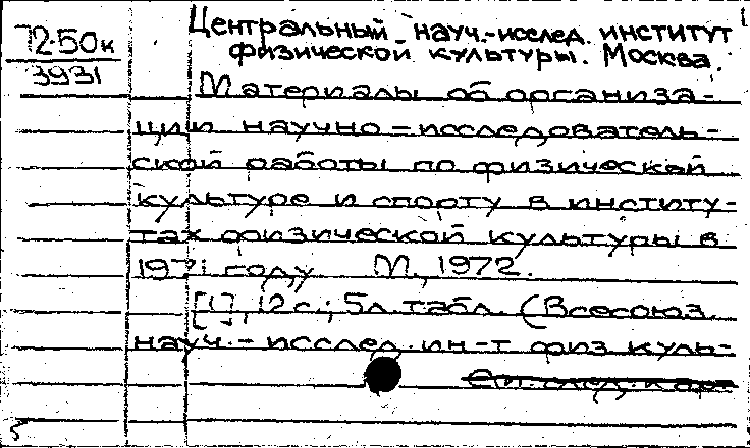 72-50к
3931
Центральный науч.-исслед. институт
физической культуры. Москва.
Материалы об организа-
ции научно-исследователь-
ской работы по физической
культуре и спорту в институ-
тах физической культуры в
1971 году М., 1972.
[1], 12 с.; 5л. табл. (Всесоюз.
науч.-исслед. ин-т физ куль-
след. кар-